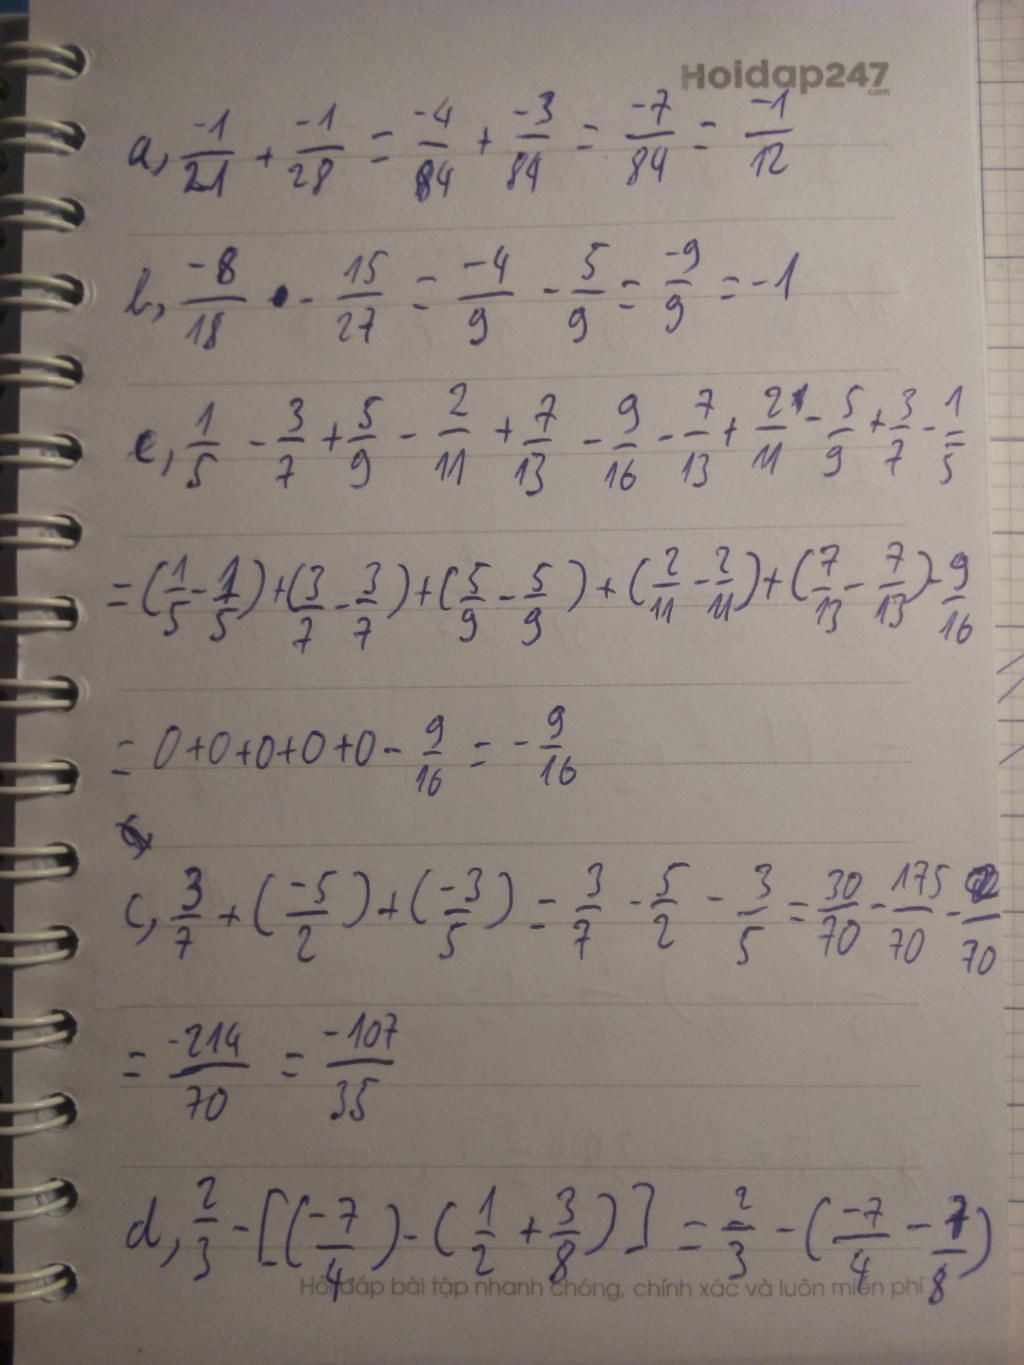 Hoidap247
.com
a, -1/21 + -1/28 = -4/84 + -3/84 = -7/84 = -1/12
b, -8/18 - 15/27 = -4/9 - 5/9 = -9/9 = -1
e, 1/5 - 3/7 + 5/9 - 2/11 + 7/13 - 9/16 - 7/13 + 2/11 - 5/9 + 3/7 - 1/5
= (1/5 - 1/5) + (3/7 - 3/7) + (5/9 - 5/9) + (2/11 - 2/11) + (7/13 - 7/13) - 9/16
= 0+0+0+0+0 - 9/16 = - 9/16
c, 3/7 + (-5/2) + (-3/5) = 3/7 - 5/2 - 3/5 = 30/70 - 175/70 - /70
= -214/70 = -107/35
d, 2/3 - [(-7/4) - (1/2 + 3/8)] = 2/3 - (-7/4 - 7/8)
Hỏi đáp bài tập nhanh chóng, chính xác và luôn miễn phí